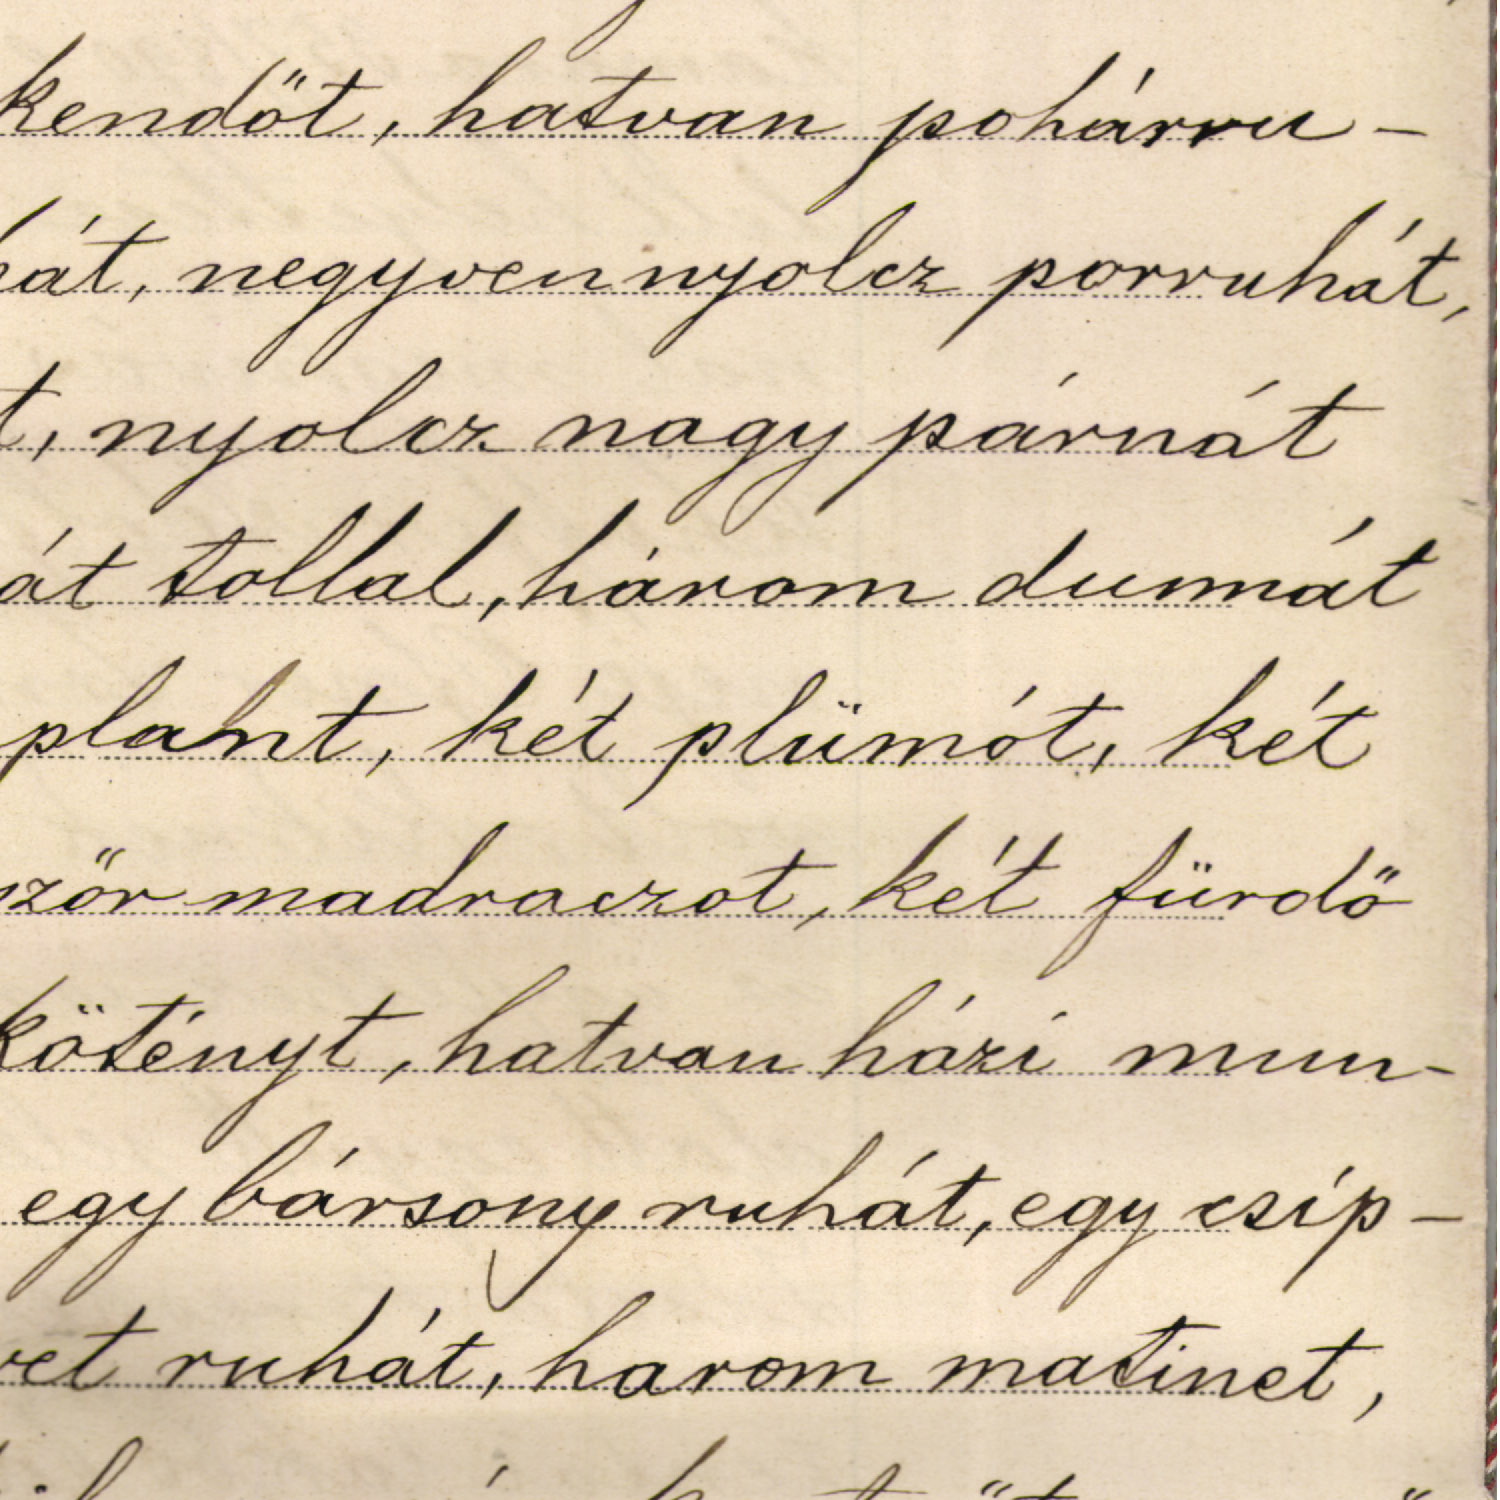 kendőt, hatvan pohárru-
hát, negyvennyolcz porruhát,
t, nyolcz nagy párnát
át tollal, három dunnát
plaht, két plümót, két
ször madraczot, két fürdő
kötényt, hatvan házi mun-
egy bársony ruhát, egy csip-
vet ruhát, harom matinet,